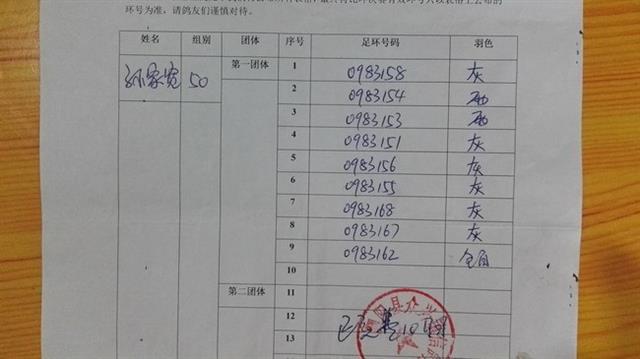 环号为准，请鸽友们谨慎对待。
姓名 组别 团体 序号 足环号码 羽色
孙家宽 50 第一团体 1 0983158 灰
2 0983154
3 0983153
4 0983151 灰
5 0983156 灰
6 0983155 灰
7 0983168 灰
8 0983167 灰
9 0983162
10
第二团体 11
12
13